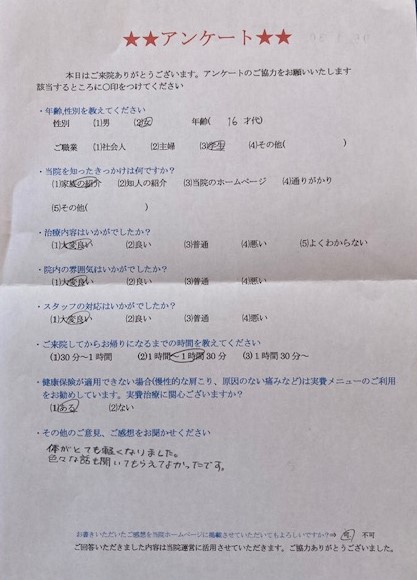 ★★アンケート★★
本日はご来院ありがとうございます。アンケートのご協力をお願いいたします
該当するところに〇印をつけてください
・年齢,性別を教えてください
性別 (1)男 (2)女 年齢( 16 才代)
ご職業 (1)社会人 (2)主婦 (3)学生 (4)その他( )
・当院を知ったきっかけは何ですか?
(1)家族の紹介 (2)知人の紹介 (3)当院のホームページ (4)通りがかり
(5)その他( )
・治療内容はいかがでしたか?
(1)大変良い (2)良い (3)普通 (4)悪い (5)よくわからない
・院内の雰囲気はいかがでしたか?
(1)大変良い (2)良い (3)普通 (4)悪い
・スタッフの対応はいかがでしたか?
(1)大変良い (2)良い (3)普通 (4)悪い
・ご来院してからお帰りになるまでの時間を教えてください
(1)30分～1時間 (2)1時間～1時間30分 (3)1時間30分～
・健康保険が適用できない場合(慢性的な肩こり、原因のない痛みなど)は実費メニューのご利用
をお勧めしています。実費治療に関心ございますか?
(1)ある (2)ない
・その他のご意見、ご感想をお聞かせください
体がとても軽くなりました。
色々な話も聞いてもらえてよかったです。
お書きいただいたご感想を当院ホームページに掲載させていただいてもよろしいですか?⇒ 可 不可
ご回答いただきました内容は当院運営に活用させていただきます。ご協力ありがとうございました。